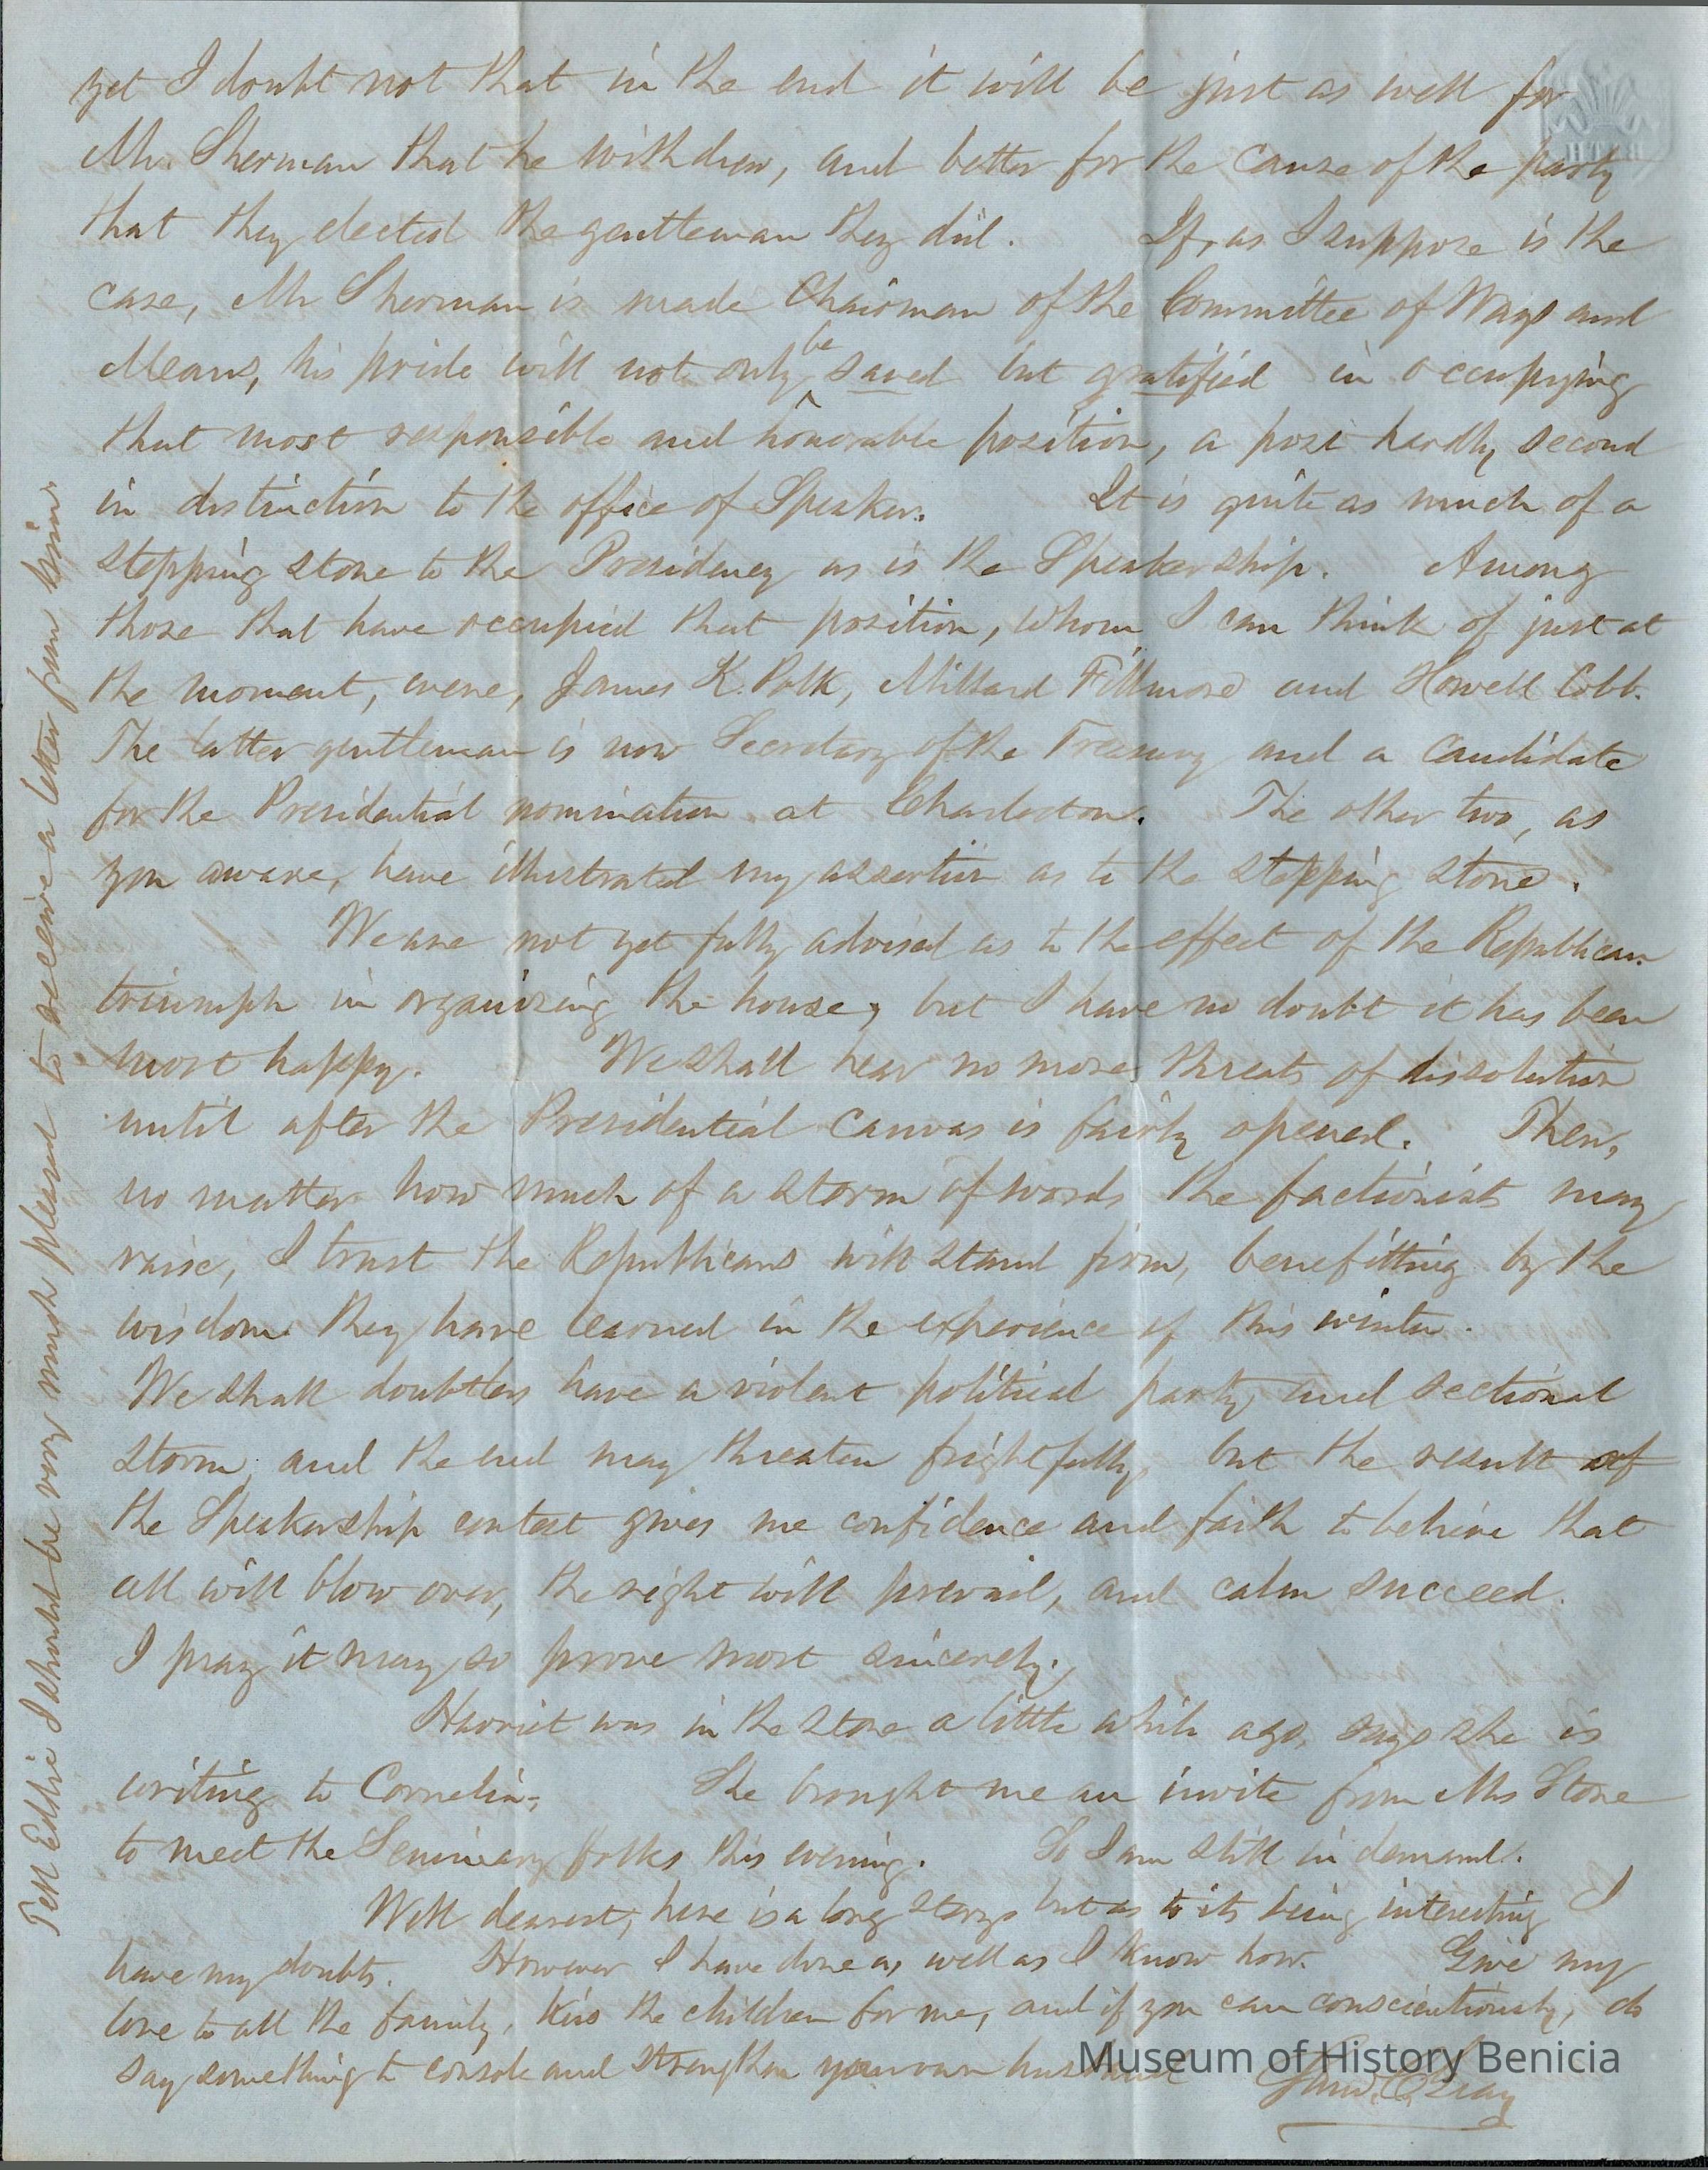 yet I doubt not that in the end it will be just as well for
Mr. Sherman that he withdrew, and better for the cause of the party
that they elected the gentleman they did. If, as I suppose is the
case, Mr Sherman is made Chairman of the Committee of Ways and
Means, his pride will not only be saved but gratified in occupying
that most responsible and honorable position, a post hardly second
in distinction to the office of Speaker. It is quite as much of a
stepping stone to the Presidency as is the Speakership. Among
those that have occupied that position, whom I can think of just at
the moment, were, James K. Polk, Millard Fillmore and Howell Cobb.
The latter gentleman is now Secretary of the Treasury and a candidate
for the Presidential nomination at Charleston. The other two, as
you aware, have illustrated my assertion as to the stepping stone.
We are not yet fully advised as to the effect of the Republican
triumph in organizing the house, but I have no doubt it has been
most happy. We shall hear no more threats of dissolution
until after the Presidential canvas is fairly opened. Then,
no matter how much of a storm of words the factionists may
raise, I trust the Republicans will stand firm, benefitting by the
wisdom they have learned in the experience of this winter.
We shall doubtless have a violent political party and sectional
storm, and the end may threaten frightfully, but the result of
the Speakership contest gives me confidence and faith to believe that
all will blow over, the right will prevail, and calm succeed.
I pray it may so prove most sincerely.
Harriet was in the store a little while ago, says she is
writing to Cornelia. She brought me an invite from Mrs Stone
to meet the Seminary folks this evening. So I am still in demand.
Well dearest, here is a long story but as to its being interesting I
have my doubts. However I have done as well as I know how. Give my
love to all the family, kiss the children for me, and if you can conscientiously, do
say something to console and strengthen your own husband
Saml. C. Gray
Tell Eddie I should be very much pleased to receive a letter from him.
Museum of History Benicia